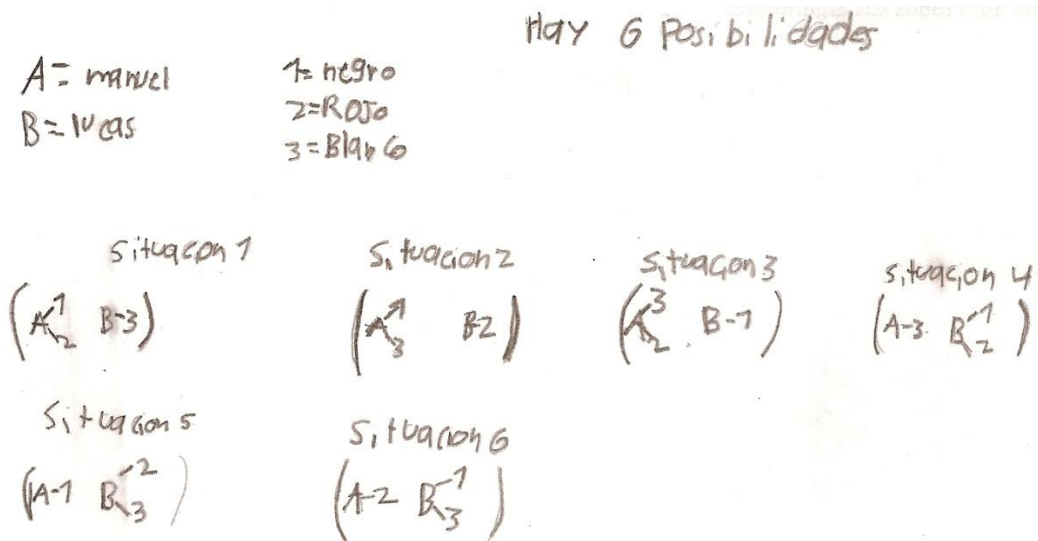 Hay 6 Posibilidades
A= manuel
B= lucas
1= negro
2=Rojo
3=Blanco
situacion 1
(A 1 2 B-3)
Situacion 2
(A 1 3 B-2)
Situacion 3
(A 3 2 . B-1)
situacion 4
(A-3. B 1 2)
Situacion 5
(A-1 B 2 3)
Situacion 6
(A-2 B 1 3)